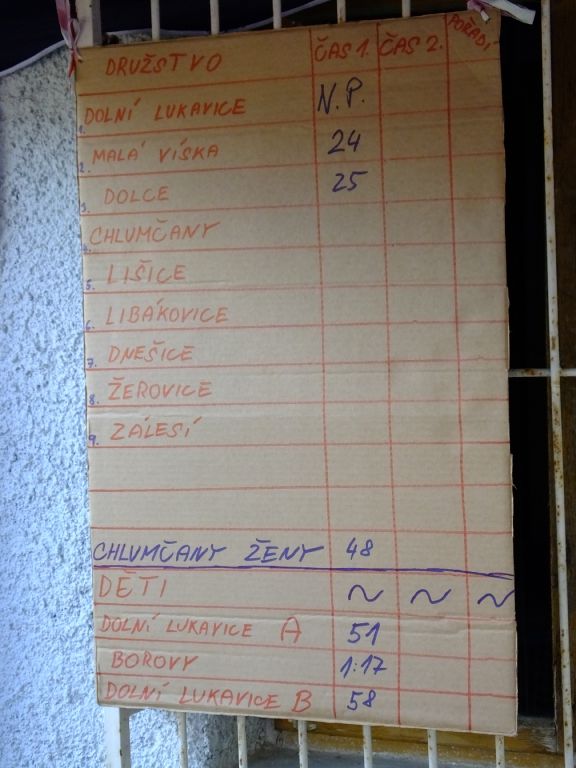 DRUŽSTVO ČAS 1. ČAS 2. POŘADÍ
1. DOLNÍ LUKAVICE N.P.
2. MALÁ VÍSKA 24
3. DOLCE 25
4. CHLUMČANY
5. LIŠICE
6. LIBÁKOVICE
7. DNEŠICE
8. ŽEROVICE
9. ZÁLESÍ
CHLUMČANY ŽENY 48
DĚTI ~ ~ ~
DOLNÍ LUKAVICE A 51
BOROVY 1:17
DOLNÍ LUKAVICE B 58